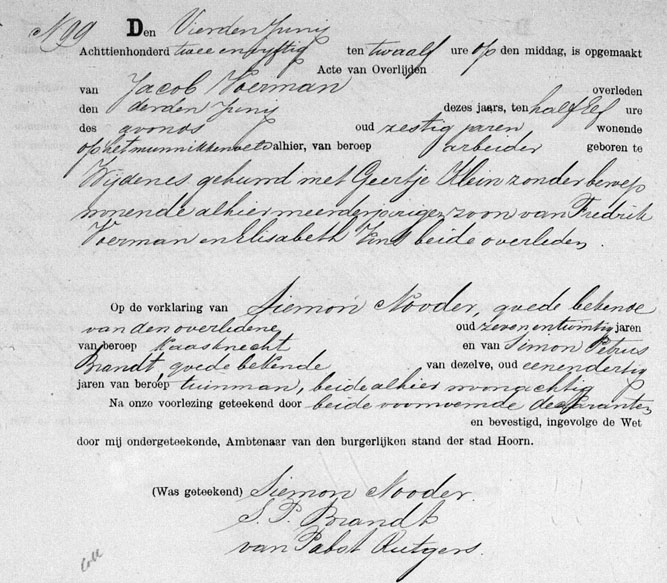 N 99 Den Vierden Junij
Achttienhonderd twee en vyftig ten twaalf ure op den middag, is opgemaakt
Acte van Overlijden
van Jacob Voerman overleden
den derden Junij dezes jaars, ten half Elf ure
des avonds oud zestig jaren wonende
op het munnikkenveld alhier, van beroep arbeider geboren te
Wijdenes gehuwd met Geertje Klein zonder beroep
wonende alhier meerderjarige zoon van Fredrik
Voerman en Elisabeth beide overleden.
Op de verklaring van Siemon Nooder, goede bekende
van den overledene, oud zeven en twintig jaren
van beroep kaasknecht en van Simon Petrus
Brandt, goede bekende van dezelve, oud een en dertig
jaren van beroep tuinman, beide alhier woonachtig
Na onze voorlezing geteekend door beide voornoemde declaranten
en bevestigd, ingevolge de Wet
door mij ondergeteekende, Ambtenaar van den burgerlijken stand der stad Hoorn.
(Was geteekend) Siemon Nooder.
S. P. Brandt
van Pabst Rutgers.
Coll